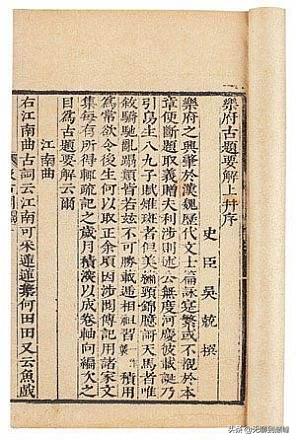 樂府古題要解上并序
史臣吳兢撰
樂府之興肇於漢魏歷代文士篇詠寔繁或不覩於本
章便斷題取義贈夫利涉則述公無度河慶彼載誕乃
引烏生八九子賦雉斑者但美繡頸錦臆歌天馬者唯
敘驕馳亂蹋類皆若茲不可勝載遞相祖習積用
為常欲令後生何以取正余頃因涉閱傳記用諸家文
集每有所得輒疏記之歲月積深以成卷軸向編次之
目爲古題要解云爾
江南曲
右江南曲古詞云江南可采蓮蓮葉何田田又云魚戲
头条 @无聊到巅峰